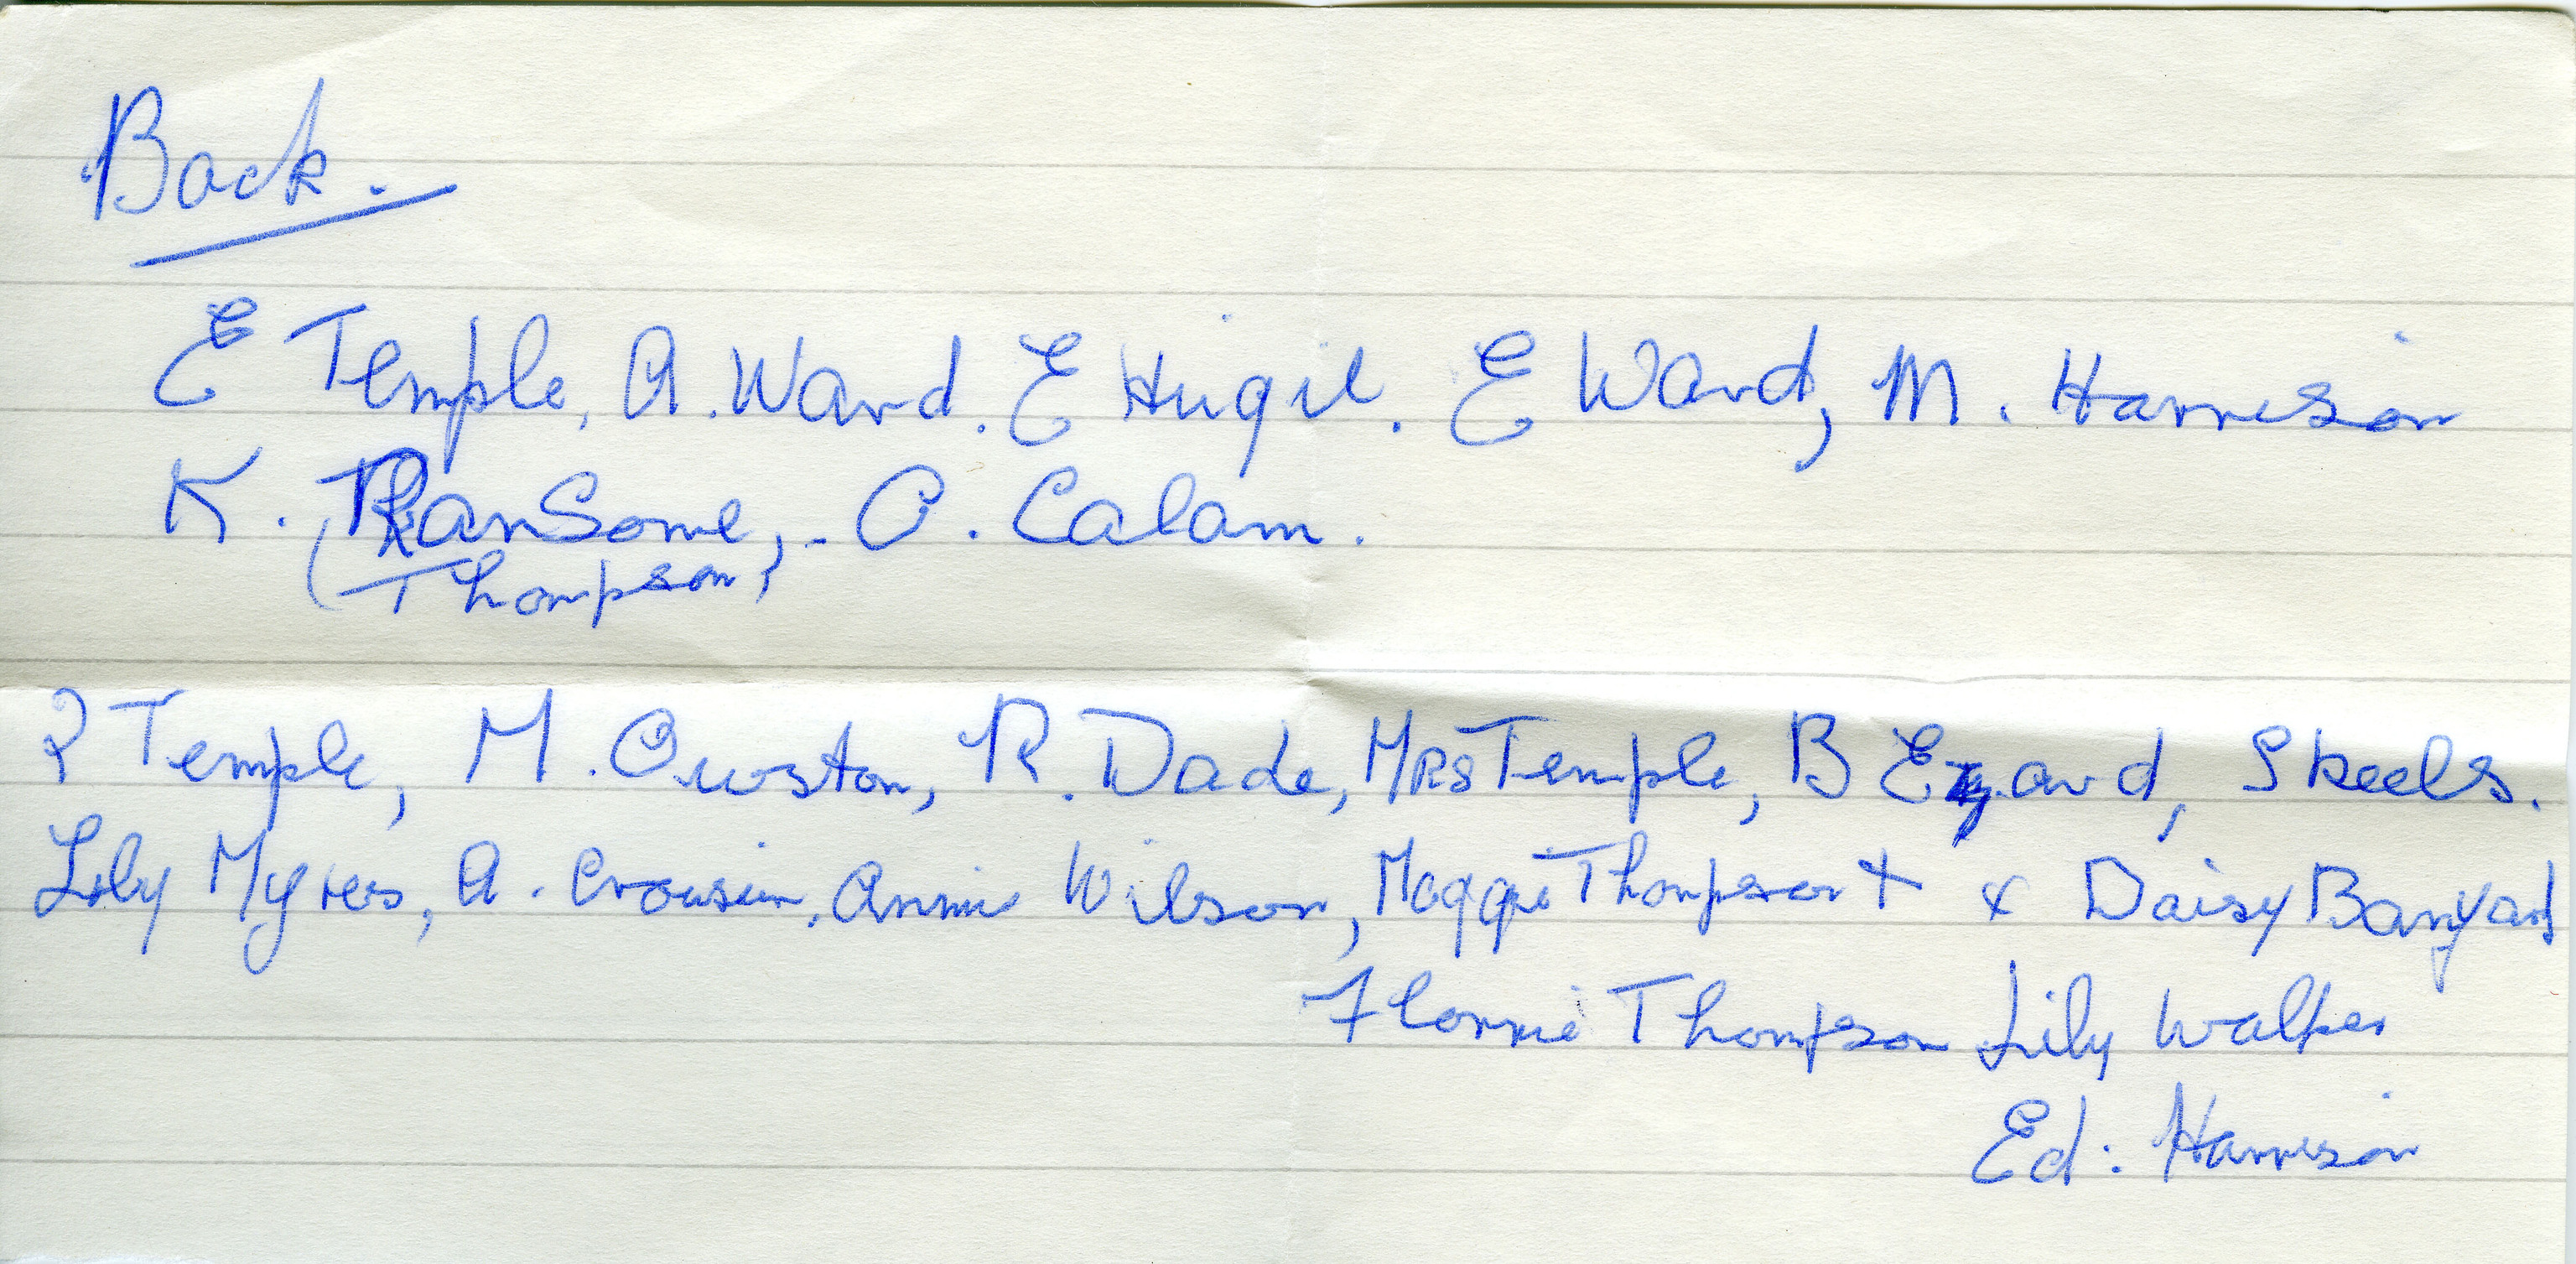 Back.
E Temple, A. Ward. E Hugil. E Ward, M. Harrison
K. Ransome, - C. Calam.
(Thompson)
? Temple, M. Owston, R. Dade, Mrs Temple, B Ezard, Skeels.
Lily Myres, A. Crowsin, Annie Wilson, Maggie Thompson + + Daisy Banyard
Florrie Thompson Lily Walker
Ed: Harrison